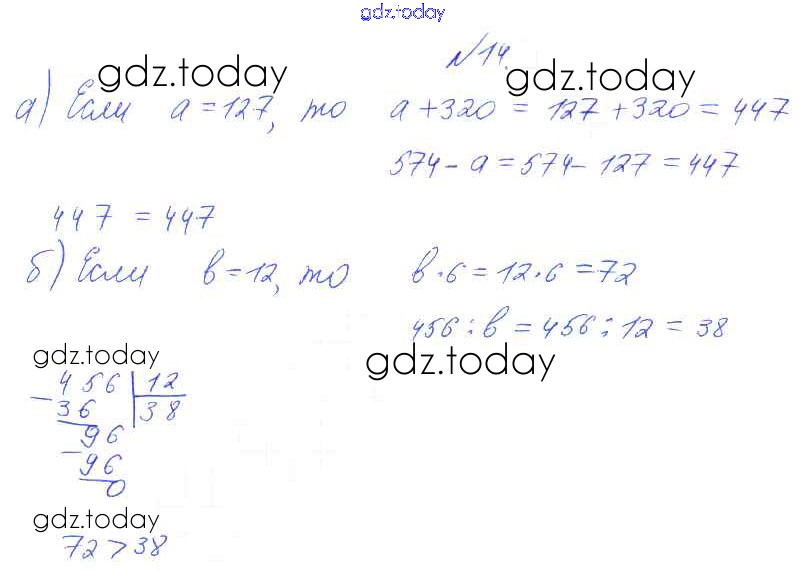 gdz.today
№14.
gdz.today gdz.today
а) Если a = 127, то a + 320 = 127 + 320 = 447
574 - a = 574 - 127 = 447
447 = 447
б) Если в = 12, то в · 6 = 12 · 6 = 72
456 : в = 456 : 12 = 38
gdz.today gdz.today
456 | 12
- 36 | 38
96
- 96
0
gdz.today
72 > 38